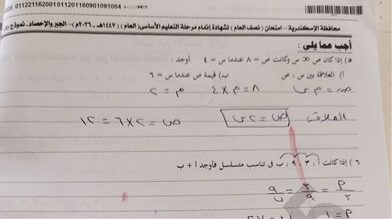 011221162001011201160901091004
محافظة الإسكندرية - امتحان (نصف العام) لشهادة إتمام مرحلة التعليم الأساسي (العام) ١٤٤٧هـ - ٢٠٢٦م - الجبر والإحصاء - نموذج
أجب عما يلى :
٥) إذا كان ص ∝ س وكانت ص = ٨ عندما س = ٤ أوجد :
أ) العلاقة بين س ، ص ب) قيمة ص عندما س = ٦
ص = م س ٨ = م × ٤ م = ٢
العلاقة ص = ٢ س ص = ٢ × ٦ = ١٢
٦) إذا كانت أ ، ٣ ، ٩ ، ب فى تناسب متسلسل فأوجد أ + ب